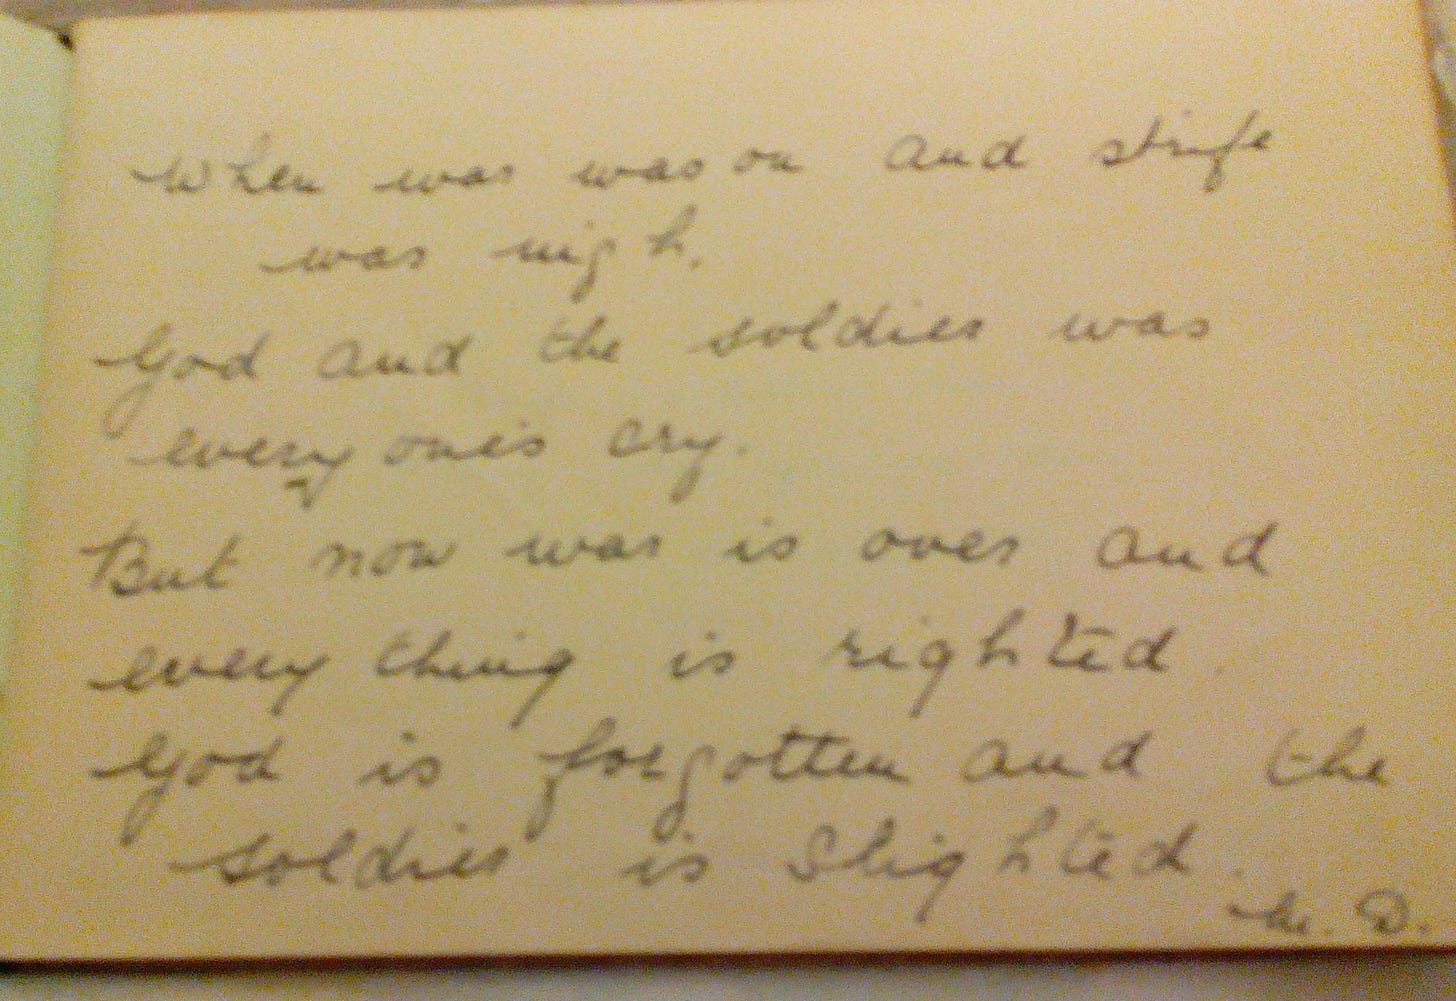 When war was on and strife
was nigh,
God and the soldier was
every one's cry.
But now war is over and
every thing is righted.
God is forgotten and the
soldier is slighted.
M. D.